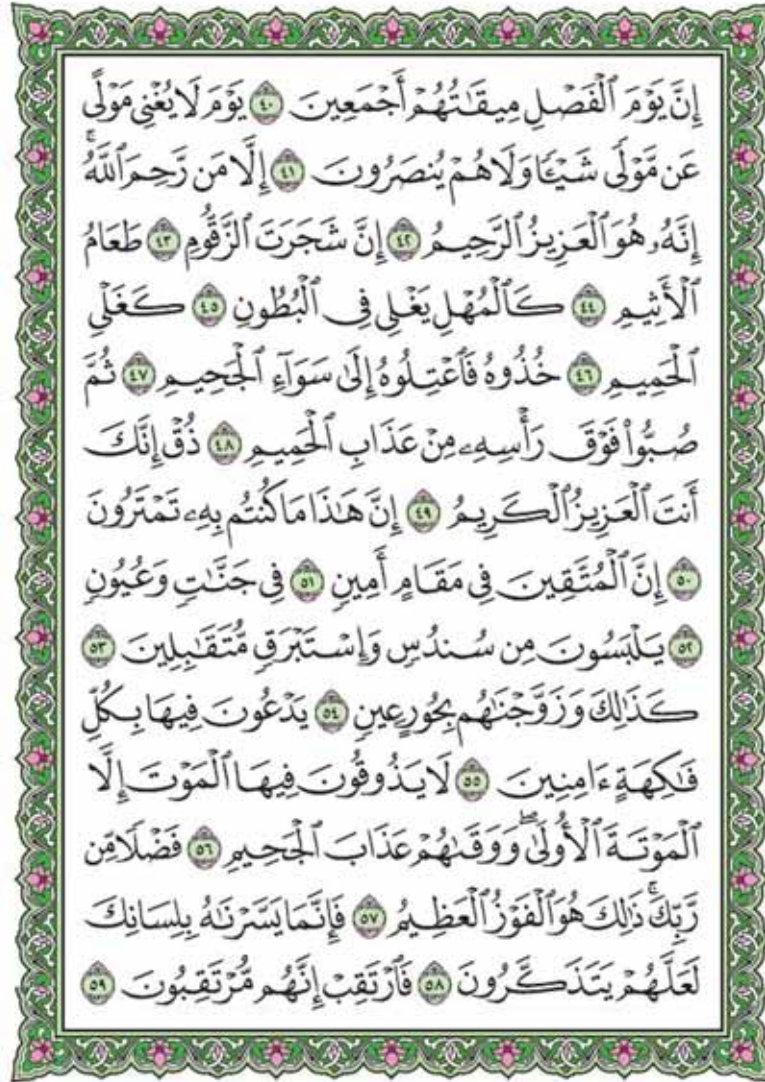 إِنَّ يَوْمَ ٱلْفَصْلِ مِيقَٰتُهُمْ أَجْمَعِينَ ٤٠ يَوْمَ لَا يُغْنِى مَوْلًى
عَن مَّوْلًى شَيْـًٔا وَلَا هُمْ يُنصَرُونَ ٤١ إِلَّا مَن رَّحِمَ ٱللَّهُ ۚ
إِنَّهُۥ هُوَ ٱلْعَزِيزُ ٱلرَّحِيمُ ٤٢ إِنَّ شَجَرَتَ ٱلزَّقُّومِ ٤٣ طَعَامُ
ٱلْأَثِيمِ ٤٤ كَٱلْمُهْلِ يَغْلِى فِى ٱلْبُطُونِ ٤٥ كَغَلْىِ
ٱلْحَمِيمِ ٤٦ خُذُوهُ فَٱعْتِلُوهُ إِلَىٰ سَوَآءِ ٱلْجَحِيمِ ٤٧ ثُمَّ
صُبُّوا۟ فَوْقَ رَأْسِهِۦ مِنْ عَذَابِ ٱلْحَمِيمِ ٤٨ ذُقْ إِنَّكَ
أَنتَ ٱلْعَزِيزُ ٱلْكَرِيمُ ٤٩ إِنَّ هَٰذَا مَا كُنتُم بِهِۦ تَمْتَرُونَ
٥٠ إِنَّ ٱلْمُتَّقِينَ فِى مَقَامٍ أَمِينٍ ٥١ فِى جَنَّٰتٍ وَعُيُونٍ
٥٢ يَلْبَسُونَ مِن سُندُسٍ وَإِسْتَبْرَقٍ مُّتَقَٰبِلِينَ ٥٣
كَذَٰلِكَ وَزَوَّجْنَٰهُم بِحُورٍ عِينٍ ٥٤ يَدْعُونَ فِيهَا بِكُلِّ
فَٰكِهَةٍ ءَامِنِينَ ٥٥ لَا يَذُوقُونَ فِيهَا ٱلْمَوْتَ إِلَّا
ٱلْمَوْتَةَ ٱلْأُولَىٰ ۖ وَوَقَىٰهُمْ عَذَابَ ٱلْجَحِيمِ ٥٦ فَضْلًا مِّن
رَّبِّكَ ۚ ذَٰلِكَ هُوَ ٱلْفَوْزُ ٱلْعَظِيمُ ٥٧ فَإِنَّمَا يَسَّرْنَٰهُ بِلِسَانِكَ
لَعَلَّهُمْ يَتَذَكَّرُونَ ٥٨ فَٱرْتَقِبْ إِنَّهُم مُّرْتَقِبُونَ ٥٩